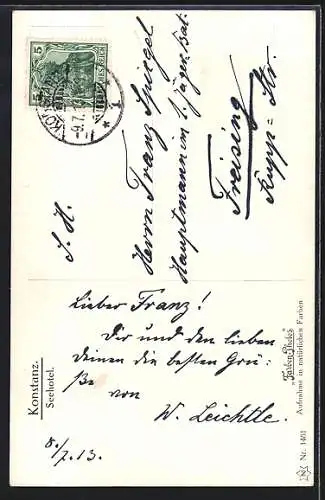 S. H.
Herrn Franz Spiegel
Hauptmann im 1. Jäger Bat.
Freising
Kupp = Str.
Lieber Franz!
Dir und den lieben
Deinen die besten Grü=
ße von
W. Leichtle.
8./7.13.
Konstanz.
Seehotel.
Aufnahme in natürlichen Farben
Nr. 1401
5
-9.7.13
* 1